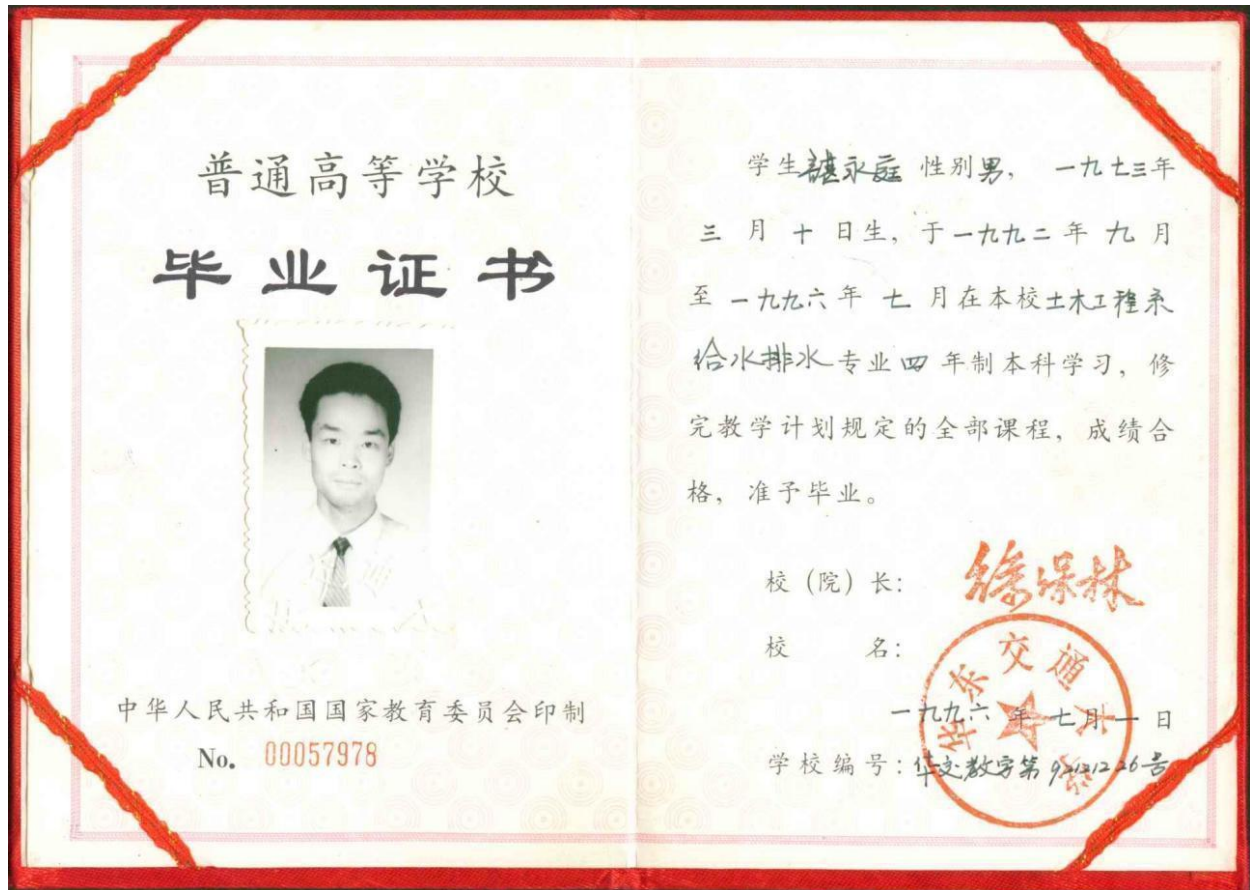 普通高等学校
毕业证书
中华人民共和国国家教育委员会印制
No. 00057978
学生谌永庭 性别男， 一九七三年
三 月 十 日生，于一九九二 年 九 月
至 一九九六 年 七 月在本校土木工程系
给水排水 专业 四 年制本科学习，修
完教学计划规定的全部课程，成绩合
格，准予毕业。
校（院）长： 徐保林
校 名：
华东交通大学
一九九六 年 七月 一 日
学校编号：华交教字第 9212126号